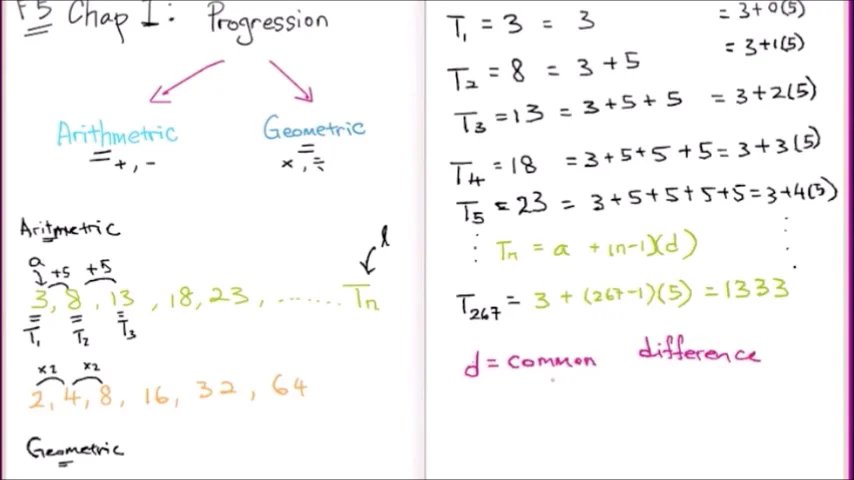 F5 Chap 1: Progression
Arithmetric
+, -
Geometric
×, ÷
Aritmetric
a
+5 +5
l
3, 8, 13, 18, 23, ........ Tn
T₁ T₂ T₃
×2 ×2
2, 4, 8, 16, 32, 64
Geometric
T₁ = 3 = 3 = 3+0(5)
T₂ = 8 = 3+5 = 3+1(5)
T₃ = 13 = 3+5+5 = 3+2(5)
T₄ = 18 = 3+5+5+5 = 3+3(5)
T₅ = 23 = 3+5+5+5+5 = 3+4(5)
⋮ Tn = a + (n-1)(d) ⋮
T₂₆₇ = 3 + (267-1)(5) = 1333
d = common difference